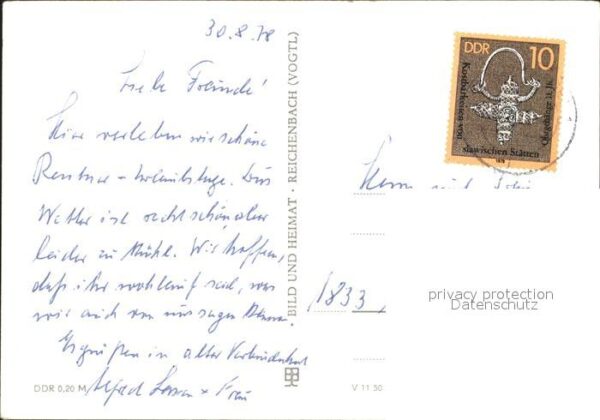 30.8.78
Liebe Freunde!
Hier verleben wir schöne
Rentner-Urlaubstage. Das
Wetter ist recht schön, aber
leider zu kühl. Wir hoffen,
daß ihr wohlauf seid, was
wir auch von uns sagen können.
Es grüßen in alter Verbundenheit
Alfred u. Frau
DDR 0,20 M
BILD UND HEIMAT · REICHENBACH (VOGTL)
V 11 50
DDR 10
Kostbarkeiten aus
slawischen Stätten
1978
Ohrgehänge 11. Jh.
1833
privacy protection
Datenschutz